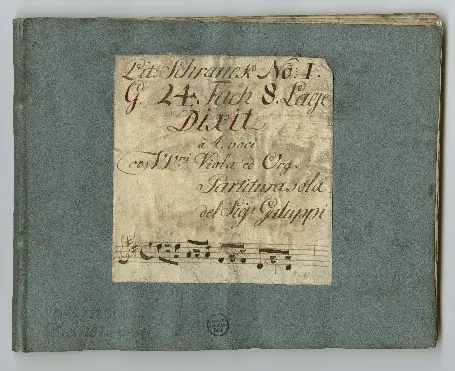 Lit: Schranck No: I.
G. 24. Fach 8. Lage
Dixit
â 4. voci
co VVni Viola ed Org.
Partitura sola
del Sigr. Galuppi